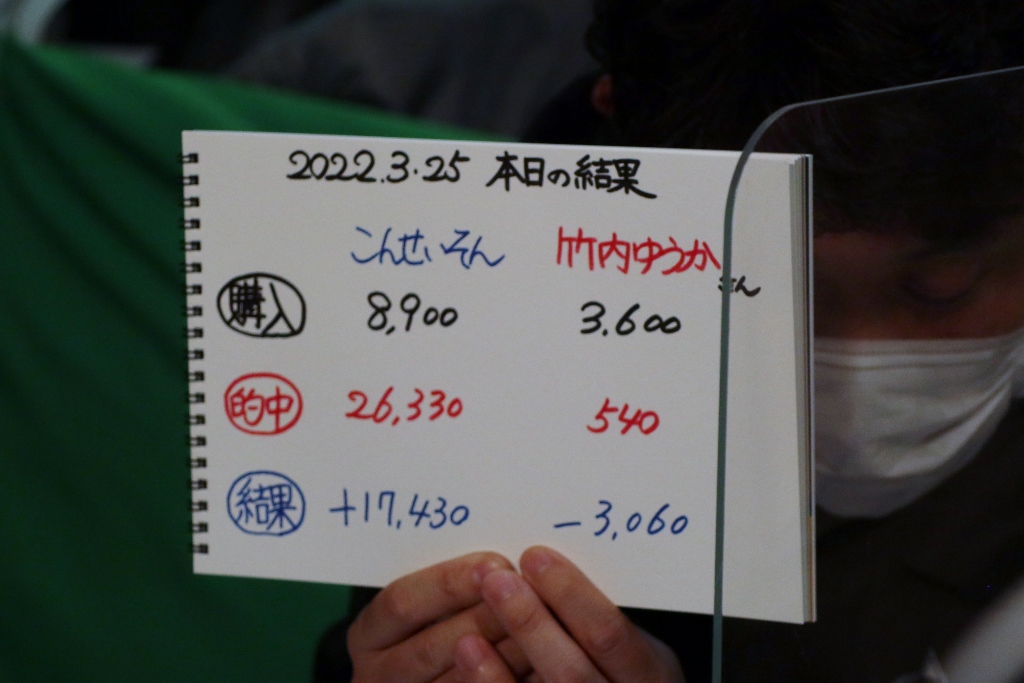 2022.3.25 本日の結果
こんせいそん 竹内ゆうか さん
購入 8,900 3.600
的中 26,330 540
結果 +17,430 -3,060